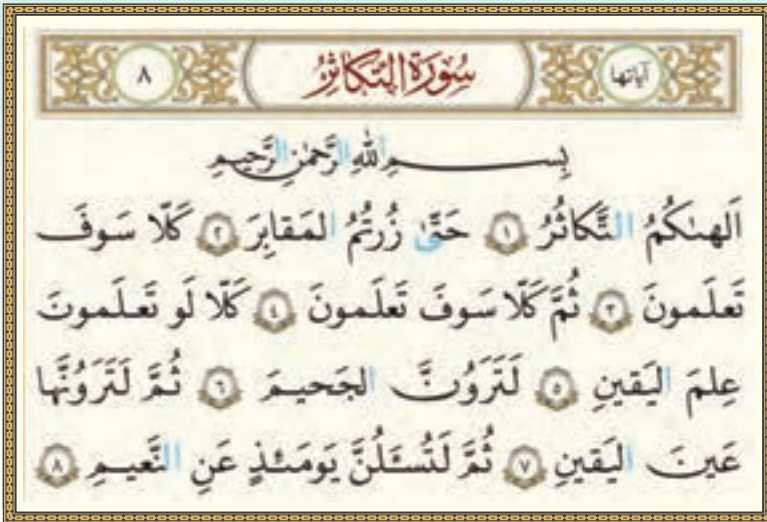 آیاتها سُورَةُ التَّكاثُرِ ٨
بِسمِ اللهِ الرَّحمٰنِ الرَّحیمِ
اَلهىٰكُمُ التَّكاثُرُ ١ حَتّىٰ زُرتُمُ المَقابِرَ ٢ كَلّا سَوفَ
تَعلَمونَ ٣ ثُمَّ كَلّا سَوفَ تَعلَمونَ ٤ كَلّا لَو تَعلَمونَ
عِلمَ الیَقینِ ٥ لَتَرَوُنَّ الجَحیمَ ٦ ثُمَّ لَتَرَوُنَّها
عَینَ الیَقینِ ٧ ثُمَّ لَتُسئَلُنَّ یَومَئِذٍ عَنِ النَّعیمِ ٨